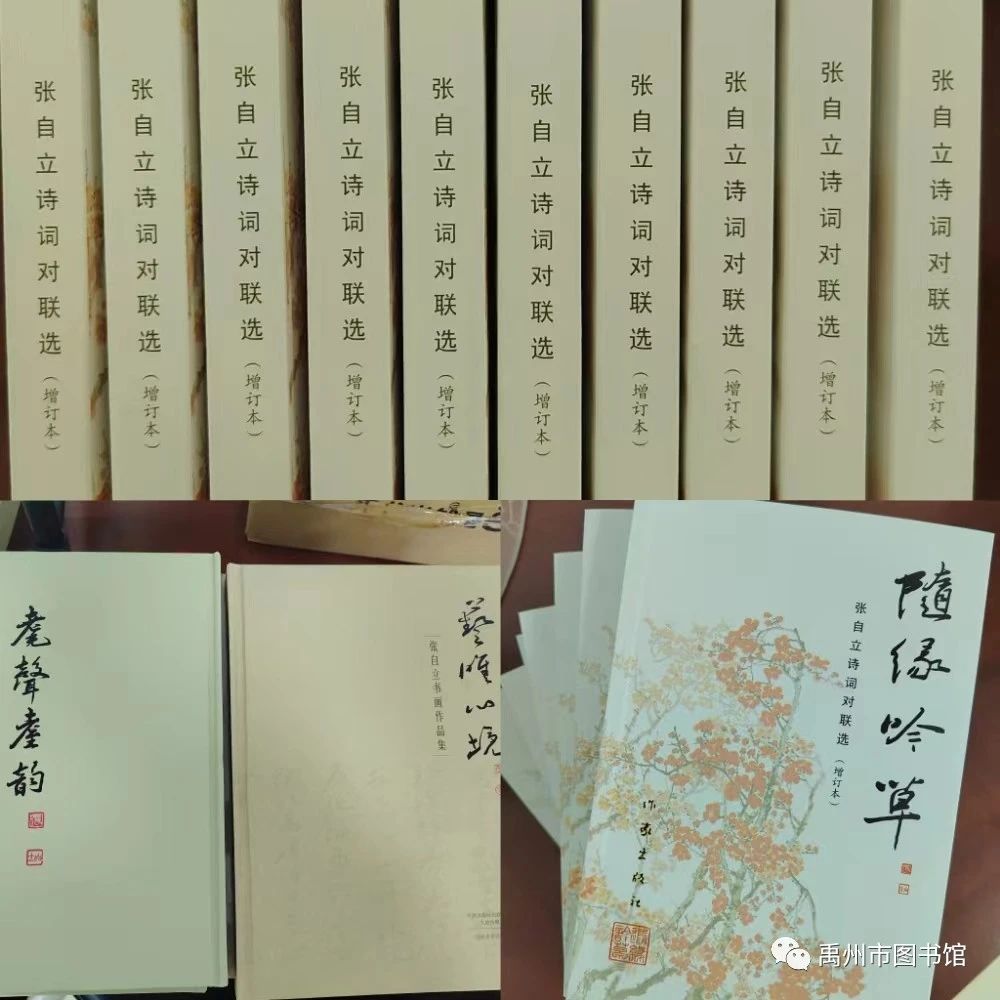 张自立诗词对联选(增订本)
张自立诗词对联选(增订本)
张自立诗词对联选(增订本)
张自立诗词对联选(增订本)
张自立诗词对联选(增订本)
张自立诗词对联选(增订本)
张自立诗词对联选(增订本)
张自立诗词对联选(增订本)
张自立诗词对联选(增订本)
张自立诗词对联选(增订本)
聲
韵
藝
心境
张自立书画作品集
隨缘吟草
张自立诗词对联选(增订本)
作家出版社
禹州市图书馆